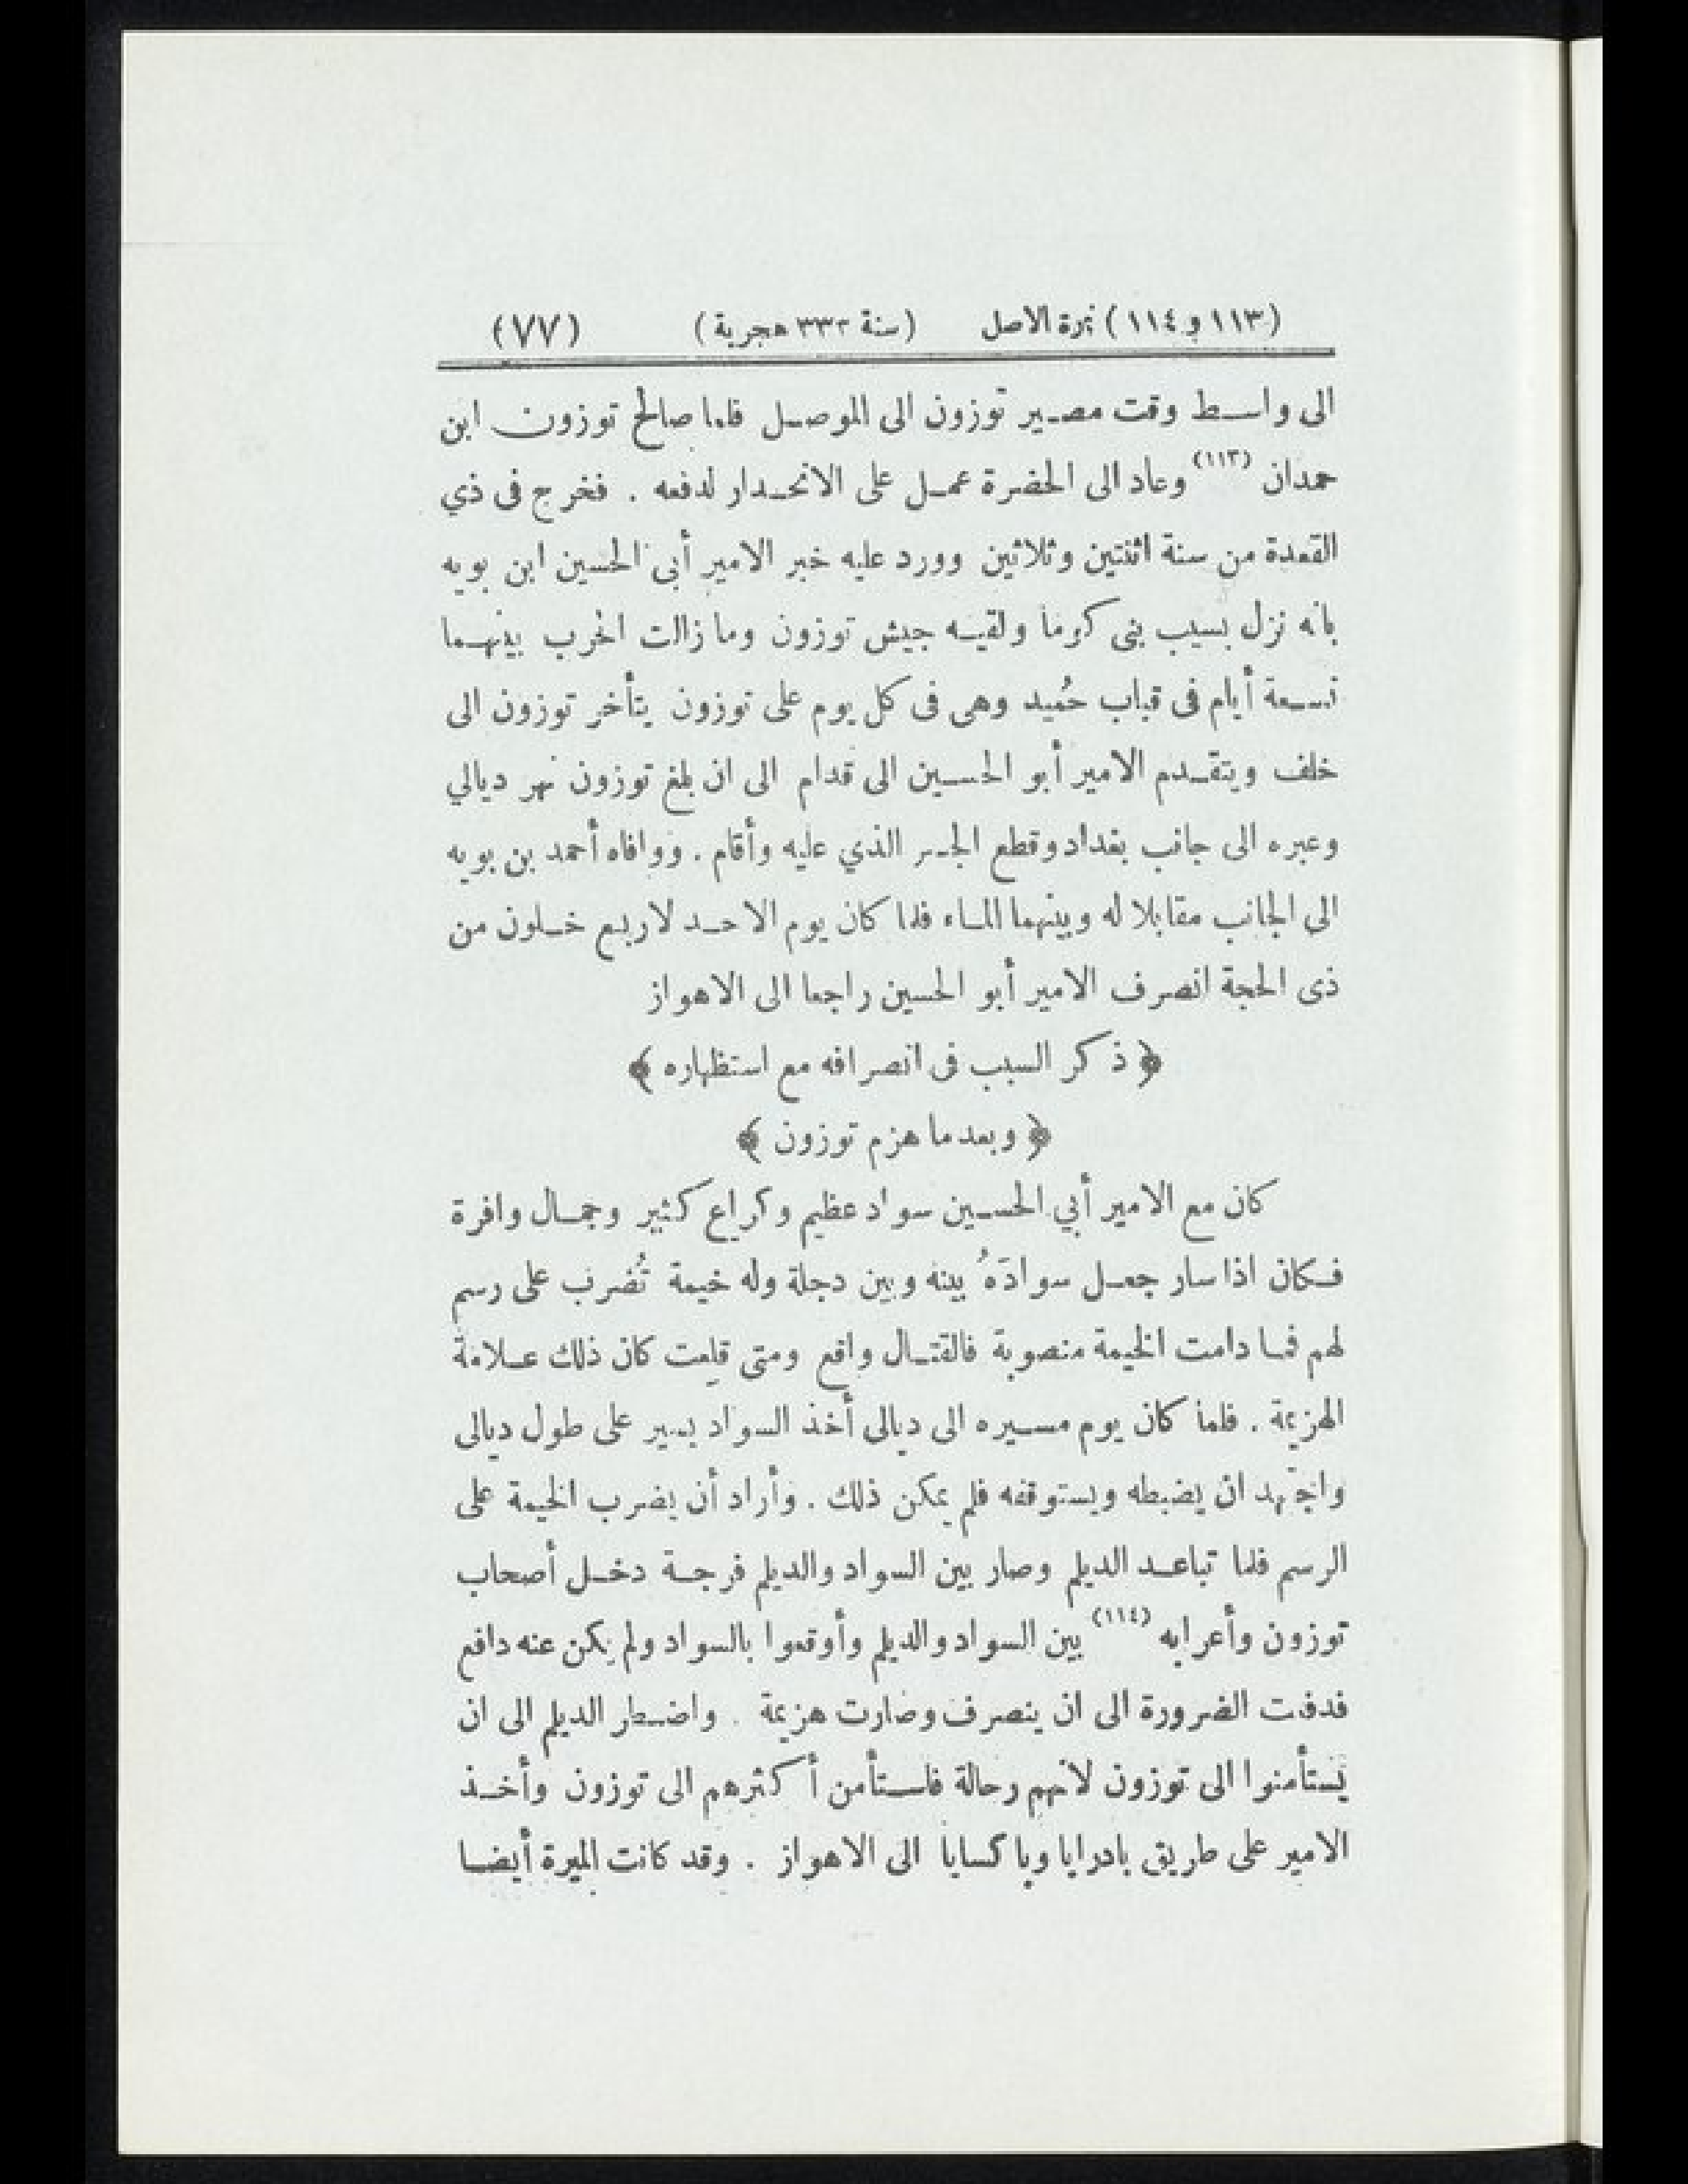 (١١٣ و ١١٤) نمرة الاصل (سنة ٣٣٢ هجرية) (٧٧)
الى واسط وقت مصير توزون الى الموصل فلما صالح توزون ابن
حمدان (١١٣) وعاد الى الحضرة عمل على الانحدار لدفعه . فخرج فى ذي
القعدة من سنة اثنتين وثلاثين وورد عليه خبر الامير أبى الحسين ابن بويه
بانه نزل بسيب بنى كوما ولقيه جيش توزون وما زالت الحرب بينهما
تسعة أيام فى قباب حُميد وهى فى كل يوم على توزون يتأخر توزون الى
خلف ويتقدم الامير أبو الحسين الى قدام الى ان بلغ توزون نهر ديالي
وعبره الى جانب بغداد وقطع الجسر الذي عليه وأقام . ووافاه أحمد بن بويه
الى الجانب مقابلا له وبينهما الماء فلما كان يوم الاحد لاربع خلون من
ذى الحجة انصرف الامير أبو الحسين راجعا الى الاهواز
﴿ ذكر السبب فى انصرافه مع استظهاره ﴾
﴿ وبعد ما هزم توزون ﴾
كان مع الامير أبي الحسين سواد عظيم وكراع كثير وجمال وافرة
فكان اذا سار جعل سوادَهُ بينه وبين دجلة وله خيمة تُضرب على رسم
لهم فما دامت الخيمة منصوبة فالقتال واقع ومتى قلعت كان ذلك علامة
الهزيمة . فلما كان يوم مسيره الى ديالى أخذ السواد يسير على طول ديالى
واجتهد ان يضبطه ويستوقفه فلم يمكن ذلك . وأراد أن يضرب الخيمة على
الرسم فلما تباعد الديلم وصار بين السواد والديلم فرجة دخل أصحاب
توزون وأعرابه (١١٤) بين السواد والديلم وأوقعوا بالسواد ولم يكن عنه دافع
فدفعت الضرورة الى ان ينصرف وصارت هزيمة . واضطر الديلم الى ان
يستأمنوا الى توزون لانهم رحالة فاستأمن أكثرهم الى توزون وأخذ
الامير على طريق بادرايا وباكسايا الى الاهواز . وقد كانت الميرة أيضا